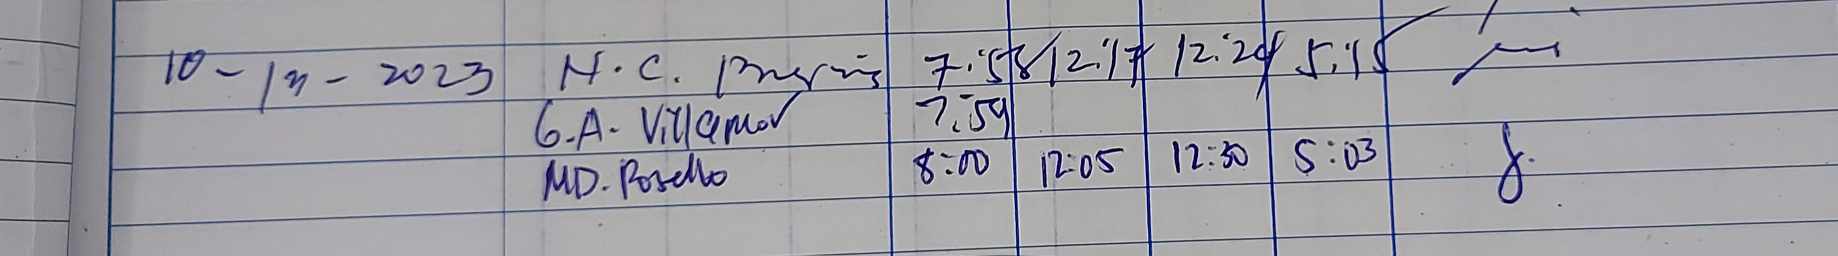 2023 N.C. 7:58 12:17 12:29 5:15
G.A. Villamor 7:59
MD. Rosello 8:00 12:05 12:30 5:03